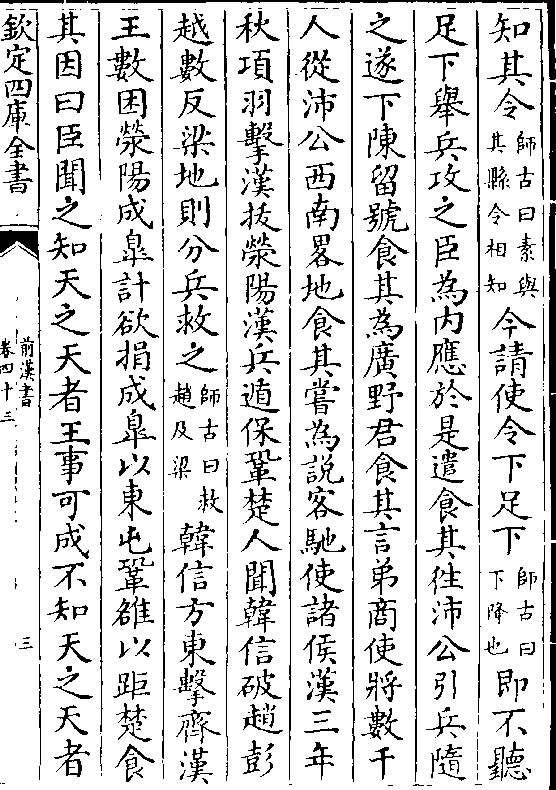 知其令師古曰素與其縣令相知今請使令下足下師古曰下降也即不聽
足下舉兵攻之臣為内應於是遣食其徃沛公引兵隨
之遂下陳留號食其為廣野君食其言弟商使將數千
人從沛公西南畧地食其嘗為説客馳使諸侯漢三年
秋項羽擊漢拔滎陽漢兵遁保鞏楚人聞韓信破趙彭
越數反梁地則分兵救之師古曰救趙及梁韓信方東擊齊漢
王數困滎陽成臯計欲捐成臯以東屯鞏雒以距楚食
其因曰臣聞之知天之天者王事可成不知天之天者
欽定四庫全書
前漢書
卷四十三
三